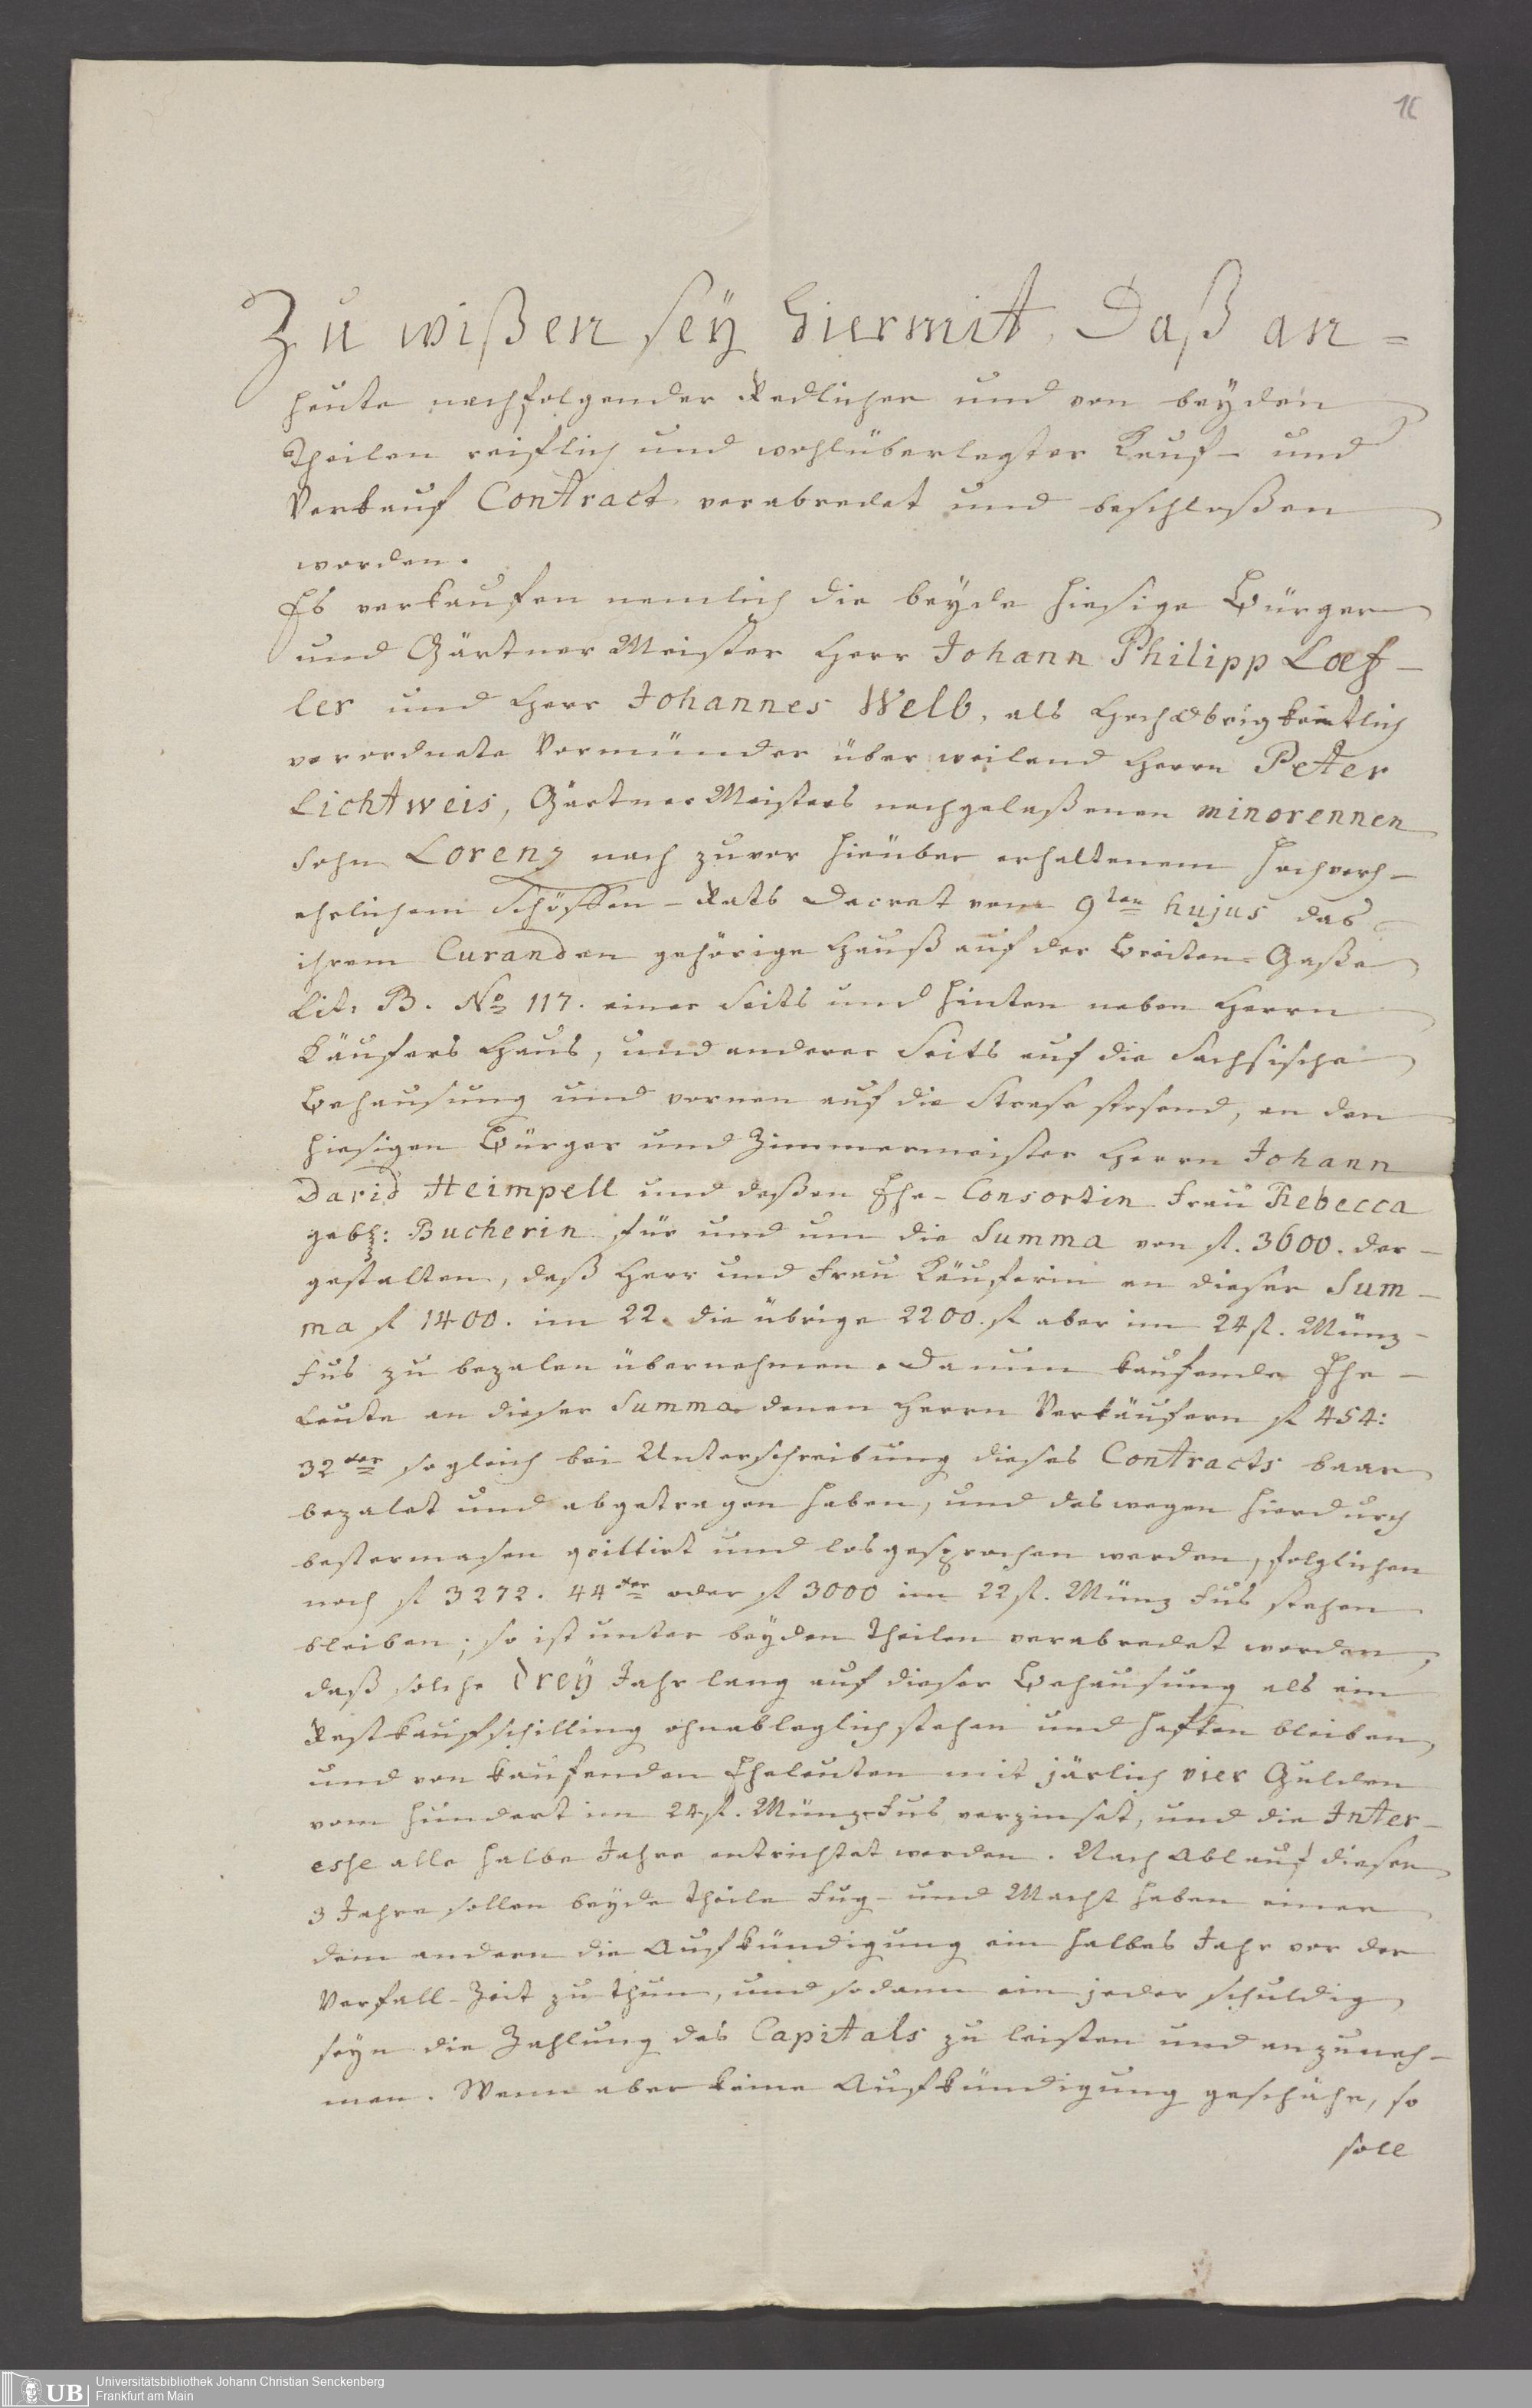 16
Zu wißen seÿ hiermit, Daß an=
heute nachfolgender Redlicher und von beyden
Theilen reiflich und wohlüberlegter Kauf- und
Verkauf Contract verabredet und beschloßen
worden.
Es verkaufen nemlich die beyde hiesige Bürger
und Gärtner Meister Herr Johann Philipp Loef-
ler und Herr Johannes Welb, als Hochobrigkeitlich
verordnete Vormünder über weiland Herrn Peter
Lichtweis, Gärtner Meisters nachgelaßenen minorennen
Sohn Lorenz nach zuvor hierüber erhaltenem Hochver-
ehrlichem Schöffen-Rats Decret vom 9ten hujus das
ihrem Curanden gehörige Hauß auf der Breiten-Gaße
Lit. B. No 117. einer Seits und hinten neben Herrn
Käufers Haus, und anderer Seits auf die Sachsische
Behausung und vornen auf die Strase stosend, an den
hiesigen Bürger und Zimmermeister Herrn Johann
David Heimpell und deßen Ehe-Consortin Frau Rebecca
geb: Bucherin für und um die Summa von fl. 3600. der-
gestalten, daß Herr und Frau Käuferin an dieser Sum-
ma fl 1400. im 22. die übrige 2200. fl aber im 24 fl. Münz-
Fus zu bezalen übernehmen. Da nun kaufende Ehe-
Leute an dieser Summa denen Herrn Verkäufern fl 454:
32 xer sogleich bei Unterschreibung dieses Contracts baar
bezalet und abgetragen haben, und deswegen hierdurch
bestermasen quittirt und losgesprochen werden, folglichen
noch fl 3272. 44 xer oder fl 3000 im 22 fl. Münz Fus stehen
bleiben; so ist unter beyden Theilen verabredet worden,
daß solche Dreÿ Jahr lang auf dieser Behausung als ein
Restkaufschilling ohnableglich stehen und haften bleiben,
und von kaufenden Eheleuten mit järlich vier Gulden
vom hundert im 24 fl. Münz-Fus verzinset, und die Inter-
esse alle halbe Jahre entrichtet werden. Nach Ablauf dieser
3 Jahre sollen beyde Theile Fug- und Macht haben einer
dem andern die Aufkündigung ein halbes Jahr vor der
Verfall-Zeit zu thun, und sodann ein jeder schuldig
seyn die Zahlung des Capitals zu leisten und anzuneh-
men. Wenn aber keine Aufkündigung geschähe, so
soll
UB
Universitätsbibliothek Johann Christian Senckenberg
Frankfurt am Main